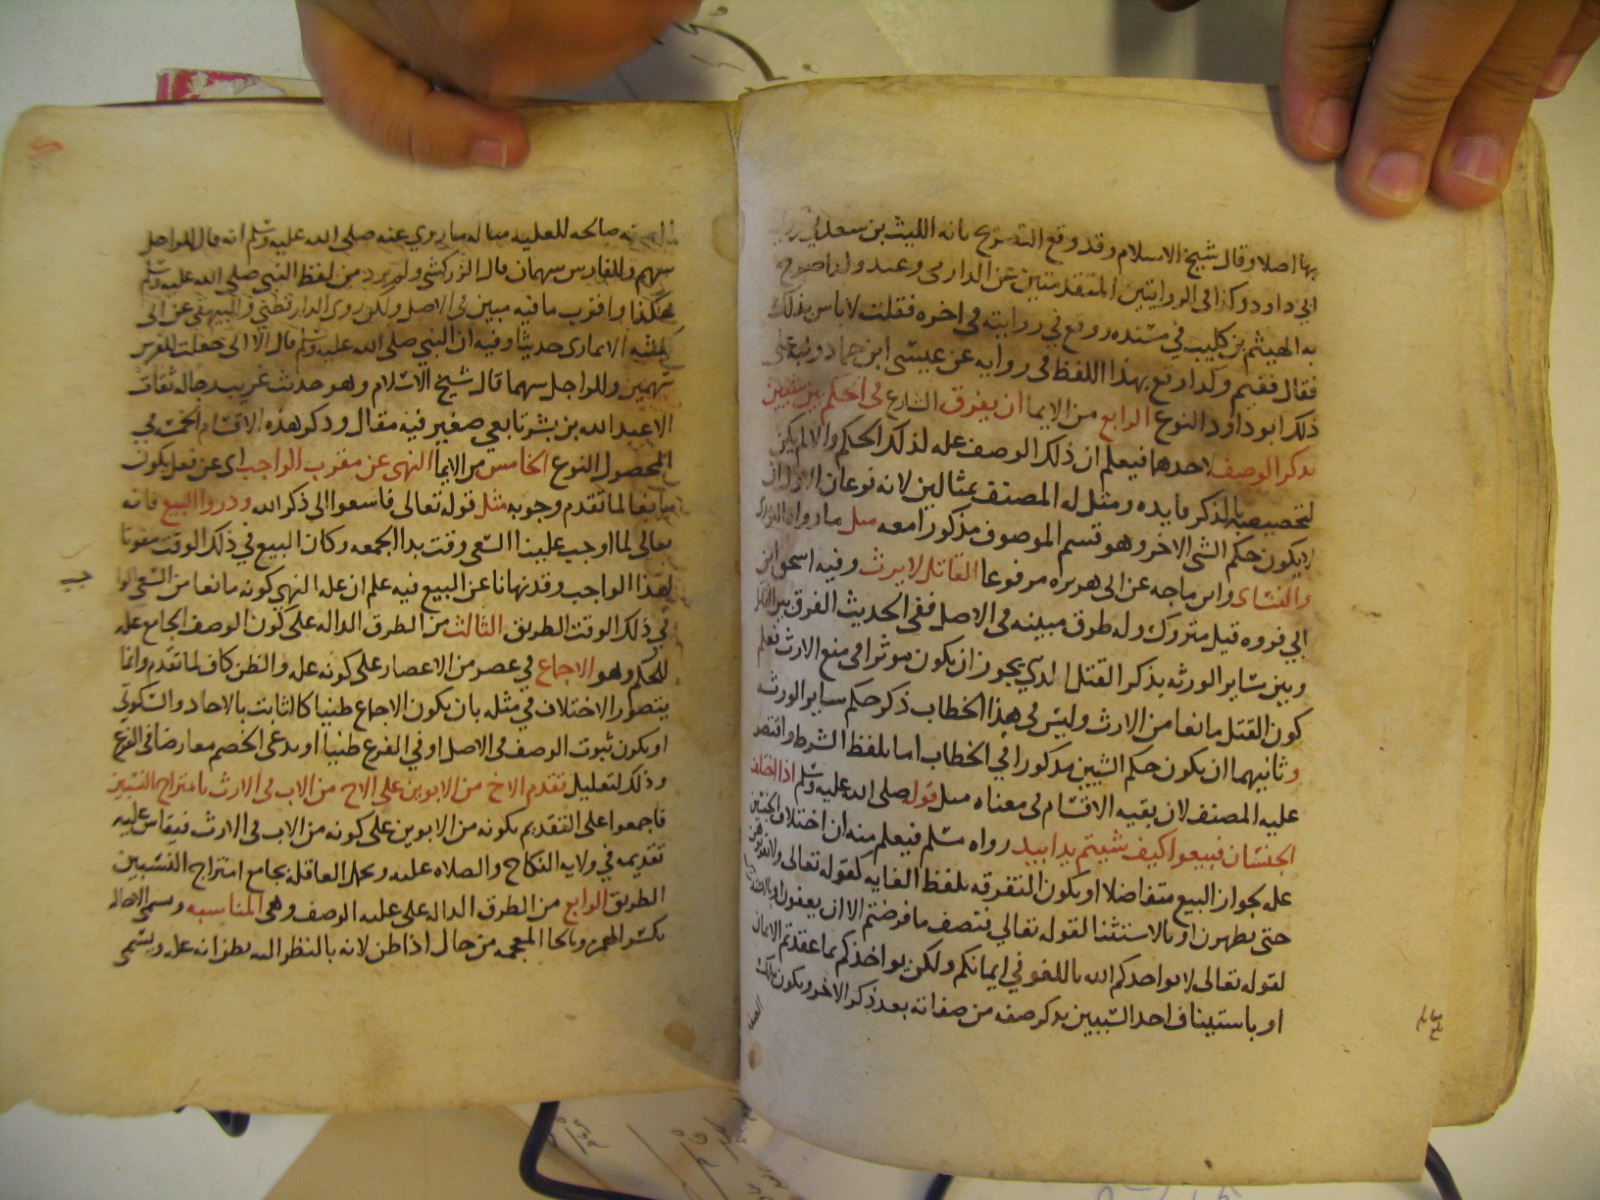 بها اصلا وقال شيخ الاسلام وقد وقع التصريح بانه الليث بن سعد في
ابي داود وكذا في الروايتين المتقدمتين عن الدارمي وعند
به الهيثم بن كليب في مسنده ووقع في روايته في اخره فقلت لا باس بذلك
فقال فقيم وكذا وقع بهذا اللفظ في روايه عن عيسى ابن حماد
ذلك ابو داود النوع الرابع من الايما ان يفرق الشارع في الحكم بين شيئين
بذكر الوصف لاحدهما فيعلم ان ذلك الوصف عله لذلك الحكم والا لم يكن
لتخصيصه بالذكر فايده ومثل له المصنف بمثالين لانه نوعان الاول ان
لا يكون حكم الشي الاخر وهو قسيم الموصوف مذكورا معه مثل ما رواه
والنساى وابن ماجه عن ابي هريره مرفوعا القاتل لا يرث وفيه اسحق ابن
ابي فروه قيل متروك وله طرق مبينه في الاصل ففي الحديث الفرق بين القاتل
وبين ساير الورثه بذكر القتل الذي يجوز ان يكون موثرا في منع الارث فعلم
كون القتل مانعا من الارث وليس في هذا الخطاب ذكر حكم ساير الورثه
وثانيهما ان يكون حكم الشيين مذكورا في الخطاب اما بلفظ الشرط واقتصر
عليه المصنف لان بقيه الاقسام في معناه مثل قوله صلى الله عليه وسلم اذا اختلف
الجنسان فبيعوا كيف شيتم يدا بيد رواه مسلم فيعلم منه ان اختلاف الجنسين
عله لجواز البيع متفاضلا او يكون التفرقه بلفظ الغايه كقوله تعالى ولا تقربوهن
حتى يطهرن او بالاستثنا لقوله تعالى فنصف ما فرضتم الا ان يعفون او
لقوله تعالى لا يواخذكم الله باللغو في ايمانكم ولكن يواخذكم بما عقدتم الايمان
او باستيناف احد الشيين بذكر صفه من صفاته بعد ذكر الاخر ويكون تلك
الصفه
صالحه للعليه مثاله ما روي عنه صلى الله عليه وسلم انه قال للراجل
سهم وللفارس سهمان قال الزركشي ولم يرد من لفظ النبي صلى الله عليه وسلم
هكذا واقرب ما فيه مبين في الاصل ولكن روى الدارقطني والبيهقي عن ابي
كبشه الانماري حديثا وفيه ان النبي صلى الله عليه وسلم قال الا اني جعلت للفرس
سهمين وللراجل سهما قال شيخ الاسلام وهو حديث غريب رجاله ثقات
الا عبد الله بن بشر تابعي صغير فيه مقال وذكر هذه الاقسام الخمسه في
المحصول النوع الخامس من الايما النهى عن مفرب الواجب اى عن فعل يكون
مانعا لما تقدم وجوبه مثل قوله تعالى فاسعوا الى ذكر الله وذروا البيع فانه
تعالى لما اوجب علينا السعى وقت ندا الجمعه وكان البيع في ذلك الوقت مفوتا
لهذا الواجب وقد نهانا عن البيع فيه علم ان عله النهي كونه مانعا من السعى
في ذلك الوقت الطريق الثالث من الطرق الداله على كون الوصف الجامع عله
للحكم وهو الاجماع في عصر من الاعصار على كونه عله والظن كاف لما تقدم وانما
يتصور الاختلاف في مثله بان يكون الاجماع ظنيا كالثابت بالاحاد والسكوتي
او يكون ثبوت الوصف في الاصل او في الفرع ظنيا او يدعى الخصم معارضا في الفرع
وذلك لتعليل تقدم الاخ من الابوين على الاخ من الاب في الارث بامتزاج النسبين
فاجمعوا على التقديم بكونه من الابوين على كونه من الاب في الارث فيقاس عليه
تقديمه في ولايه النكاح والصلاه عليه وتحمل العاقله بجامع امتزاج النسبين
الطريق الرابع من الطرق الداله على عليه الوصف وهى المناسبه وتسمى الاخاله
بكسر الهمزه وبالخا المعجمه من خال اذا ظن لانه بالنظر اليه يظن انه عله ويسمى